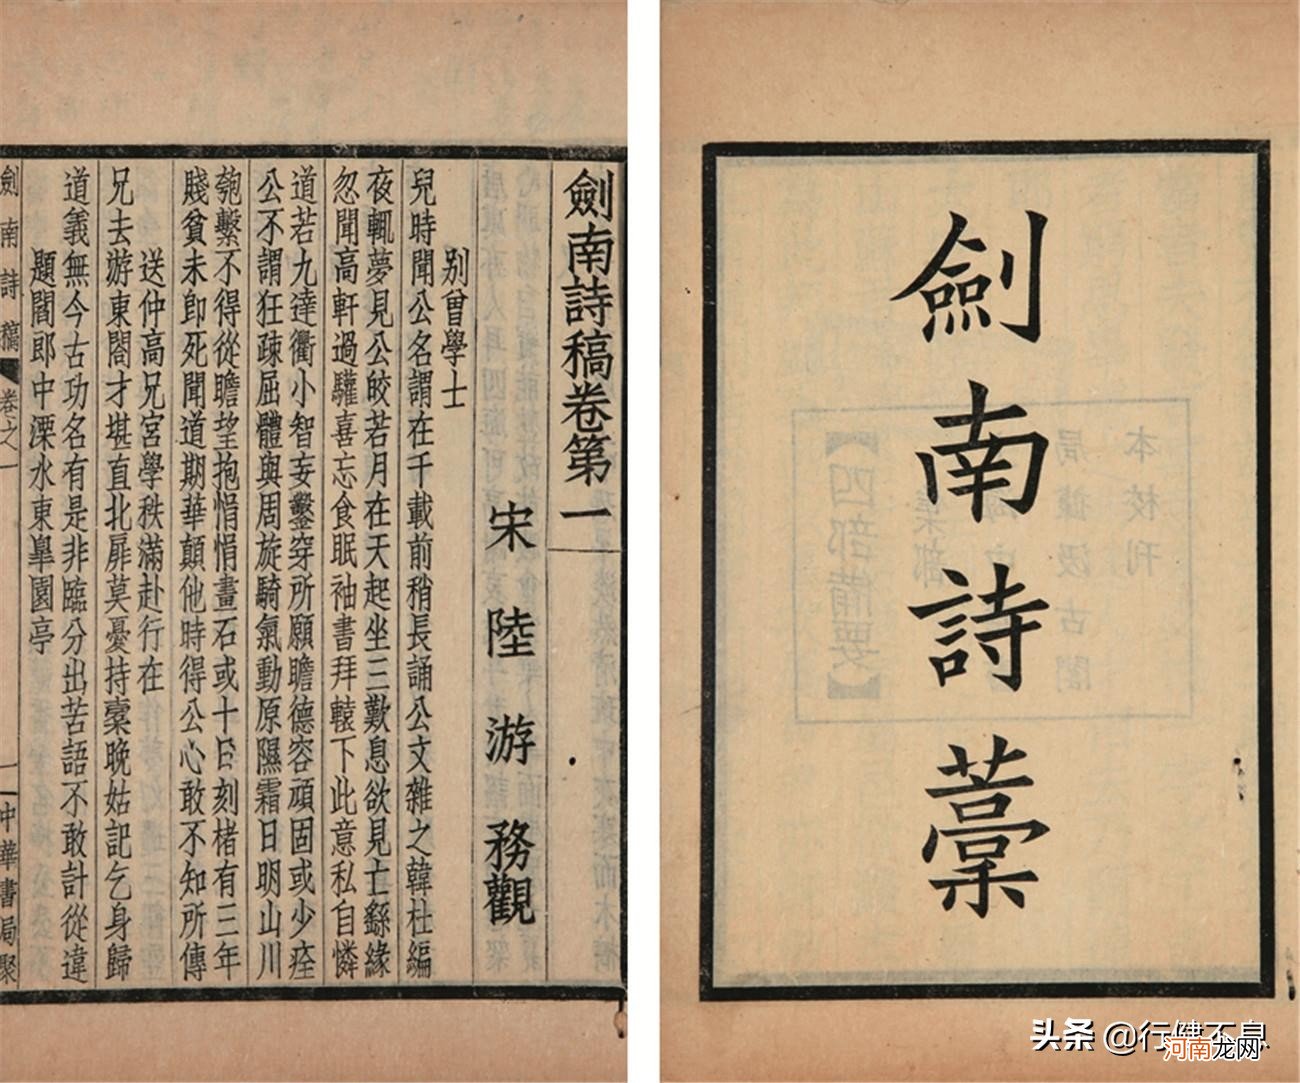 劍南詩藁
劍南詩稿卷第一
宋 陸 游 務觀
別曾學士
兒時聞公名謂在千載前稍長誦公文雜之韓杜編
夜輒夢見公皎若月在天起坐三歎息欲見亡繇緣
忽聞高軒過驩喜忘食眠袖書拜轅下此意私自憐
道若九達衢小智妄鑿穿所願瞻德容頑固或少痊
公不謂狂疎屈體與周旋騎氣動原隰霜日明山川
匏繫不得從瞻望抱悁悁畫石或十日刻楮有三年
賤貧未即死聞道期華顛他時得公心敢不知所傳
送仲高兄宮學秩滿赴行在
兄去游東閤才堪直北扉莫憂持橐晚姑記乞身歸
道義無今古功名有是非臨分出苦語不敢計從違
題閻郎中溧水東皐園亭
劍南詩稿 卷之一 一 中華書局聚
头条 @行健不息
河南龙网